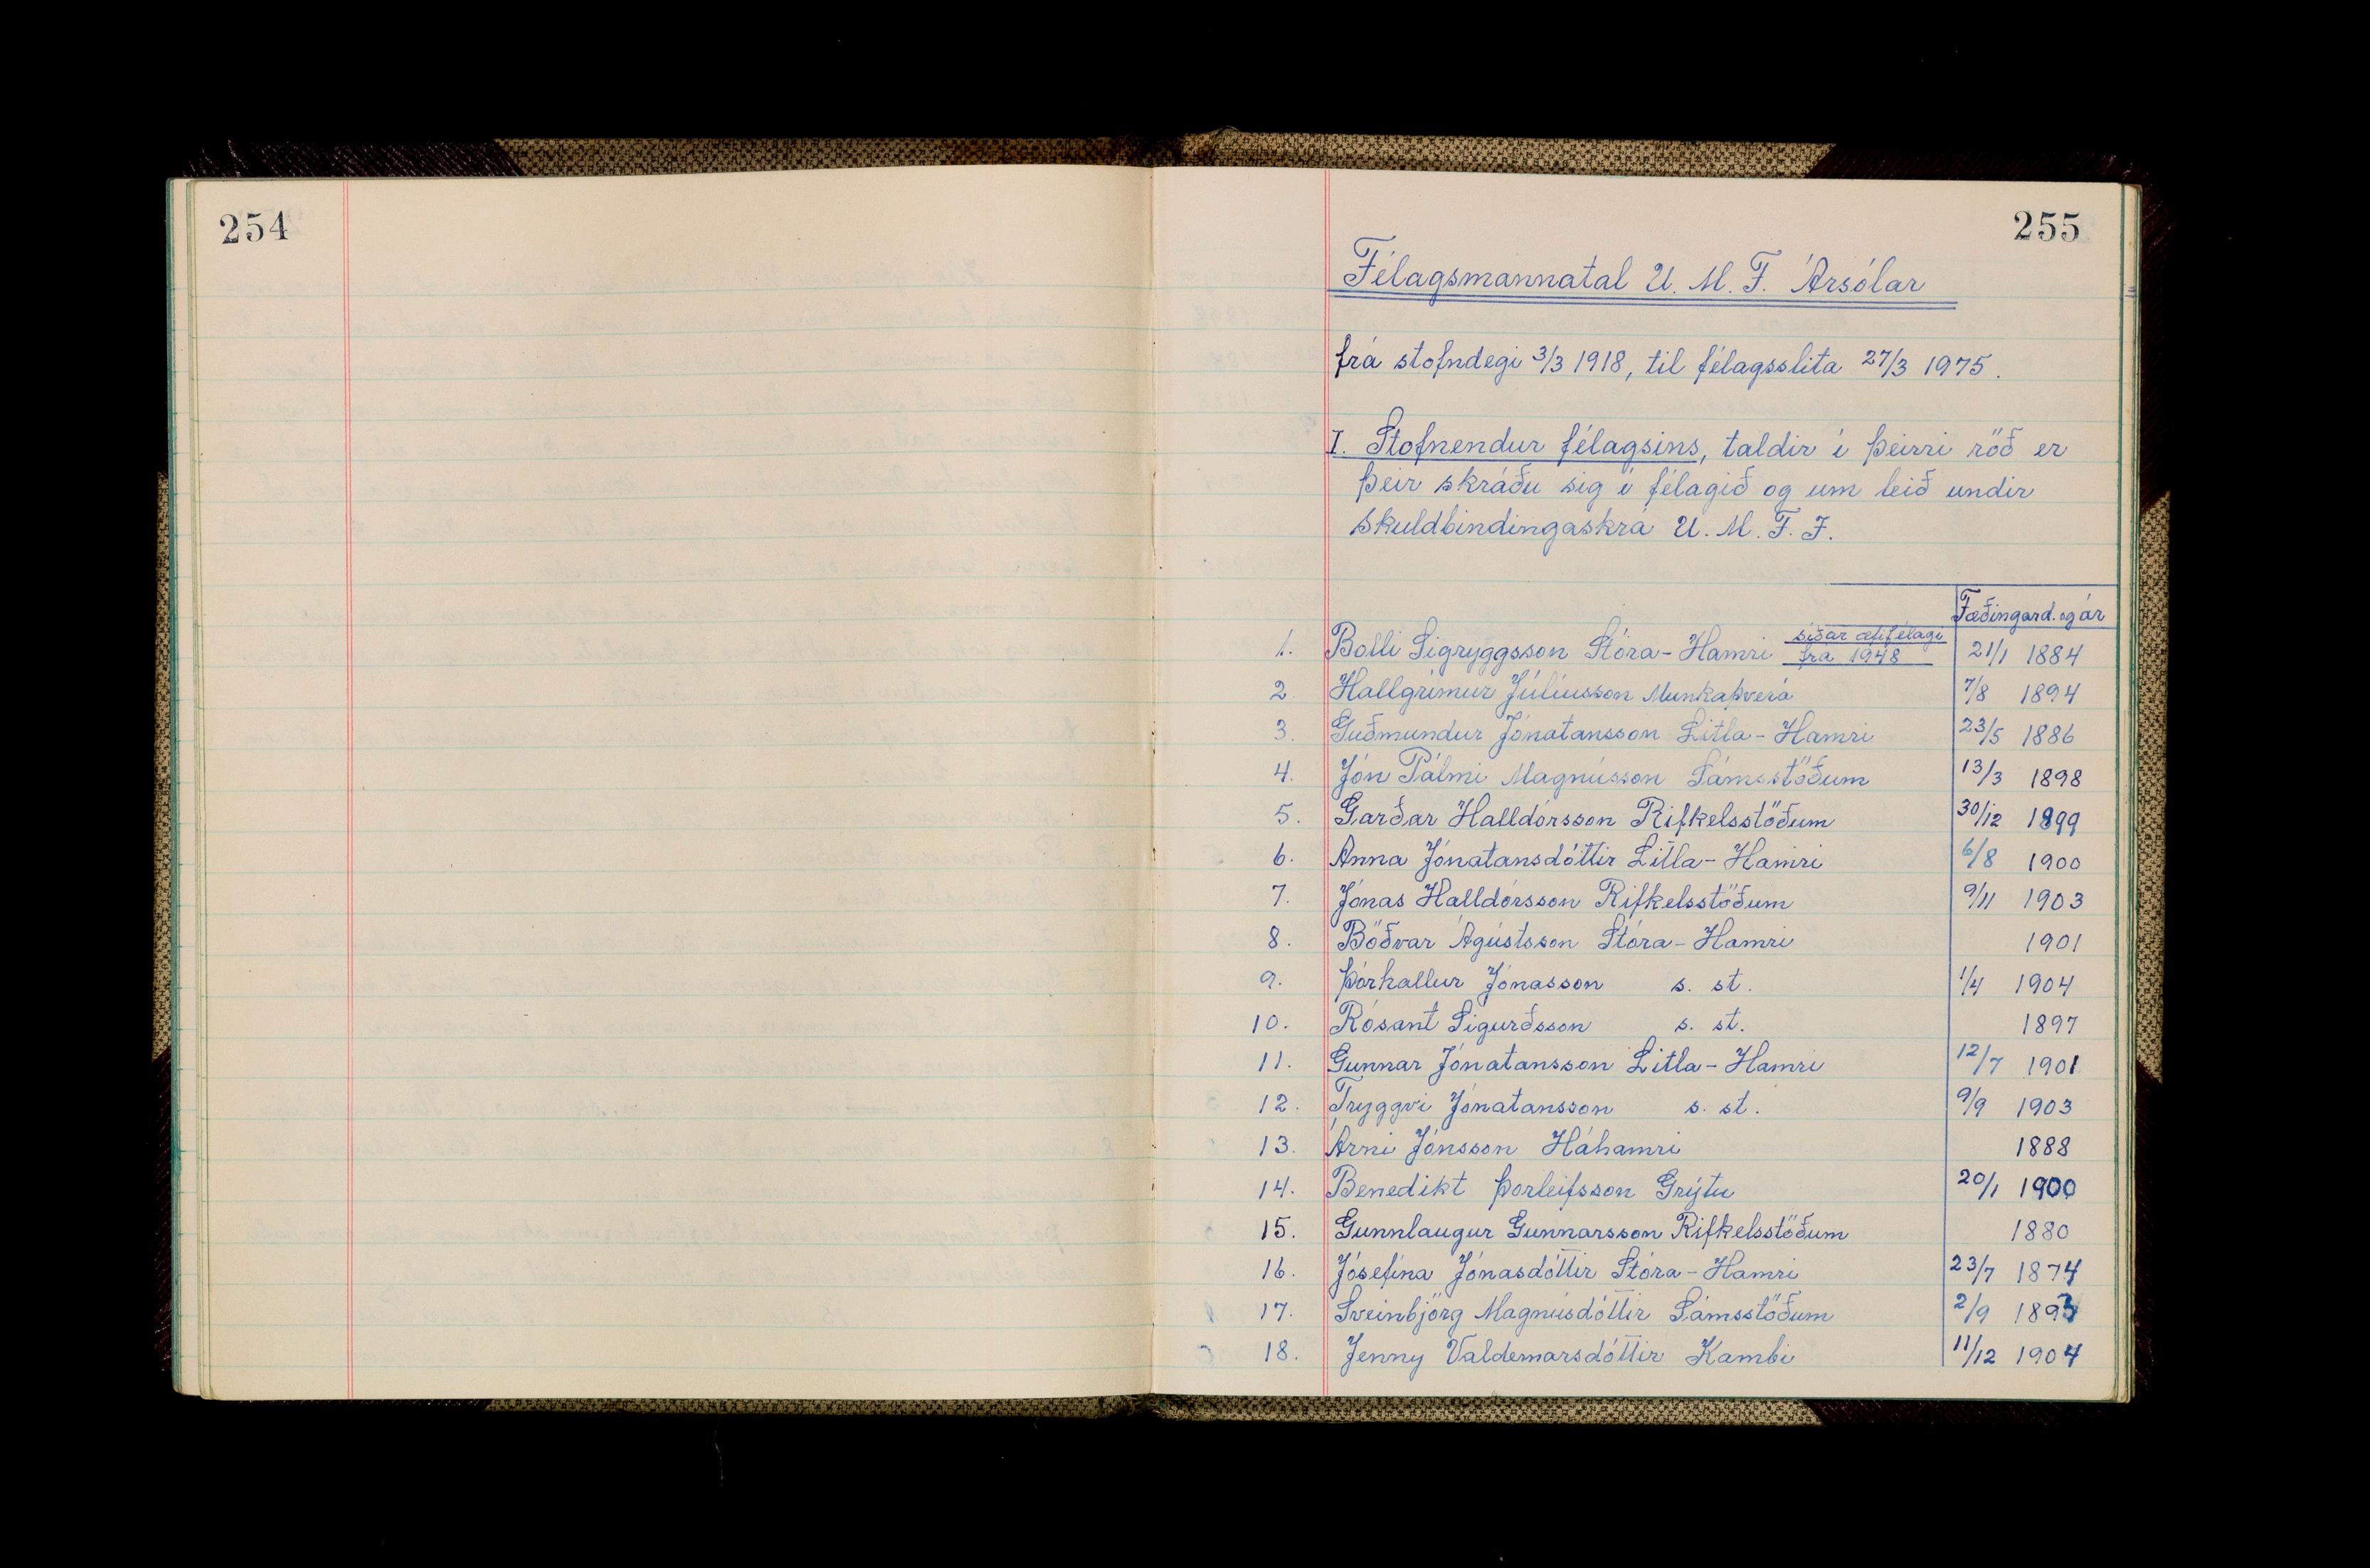 254
255
Félagsmannatal U. M. F. Ársólar
frá stofndegi 3/3 1918, til félagsslita 27/3 1975.
I. Stofnendur félagsins, taldir í þeirri röð er
þeir skráðu sig í félagið og um leið undir
skuldbindingaskrá U. M. F. Í.
Fæðingard. og ár
síðar æfifélagi
1. Bolli Sigryggsson Stóra-Hamri frá 1948 21/1 1884
2. Hallgrímur Júlíusson Munkaþverá 7/8 1894
3. Guðmundur Jónatansson Litla-Hamri 23/5 1886
4. Jón Pálmi Magnússon Sámsstöðum 13/3 1898
5. Garðar Halldórsson Rifkelsstöðum 30/12 1899
6. Anna Jónatansdóttir Litla-Hamri 6/8 1900
7. Jónas Halldórsson Rifkelsstöðum 9/11 1903
8. Böðvar Ágústsson Stóra-Hamri 1901
9. Þórhallur Jónasson s. st. 1/4 1904
10. Rósant Sigurðsson s. st. 1897
11. Gunnar Jónatansson Litla-Hamri 12/7 1901
12. Tryggvi Jónatansson s. st. 9/9 1903
13. Árni Jónsson Háhamri 1888
14. Benedikt Þorleifsson Grýtu 20/1 1900
15. Gunnlaugur Gunnarsson Rifkelsstöðum 1880
16. Jósefína Jónasdóttir Stóra-Hamri 23/7 1874
17. Sveinbjörg Magnúsdóttir Sámsstöðum 2/9 1893
18. Jenny Valdemarsdóttir Kambi 11/12 1904